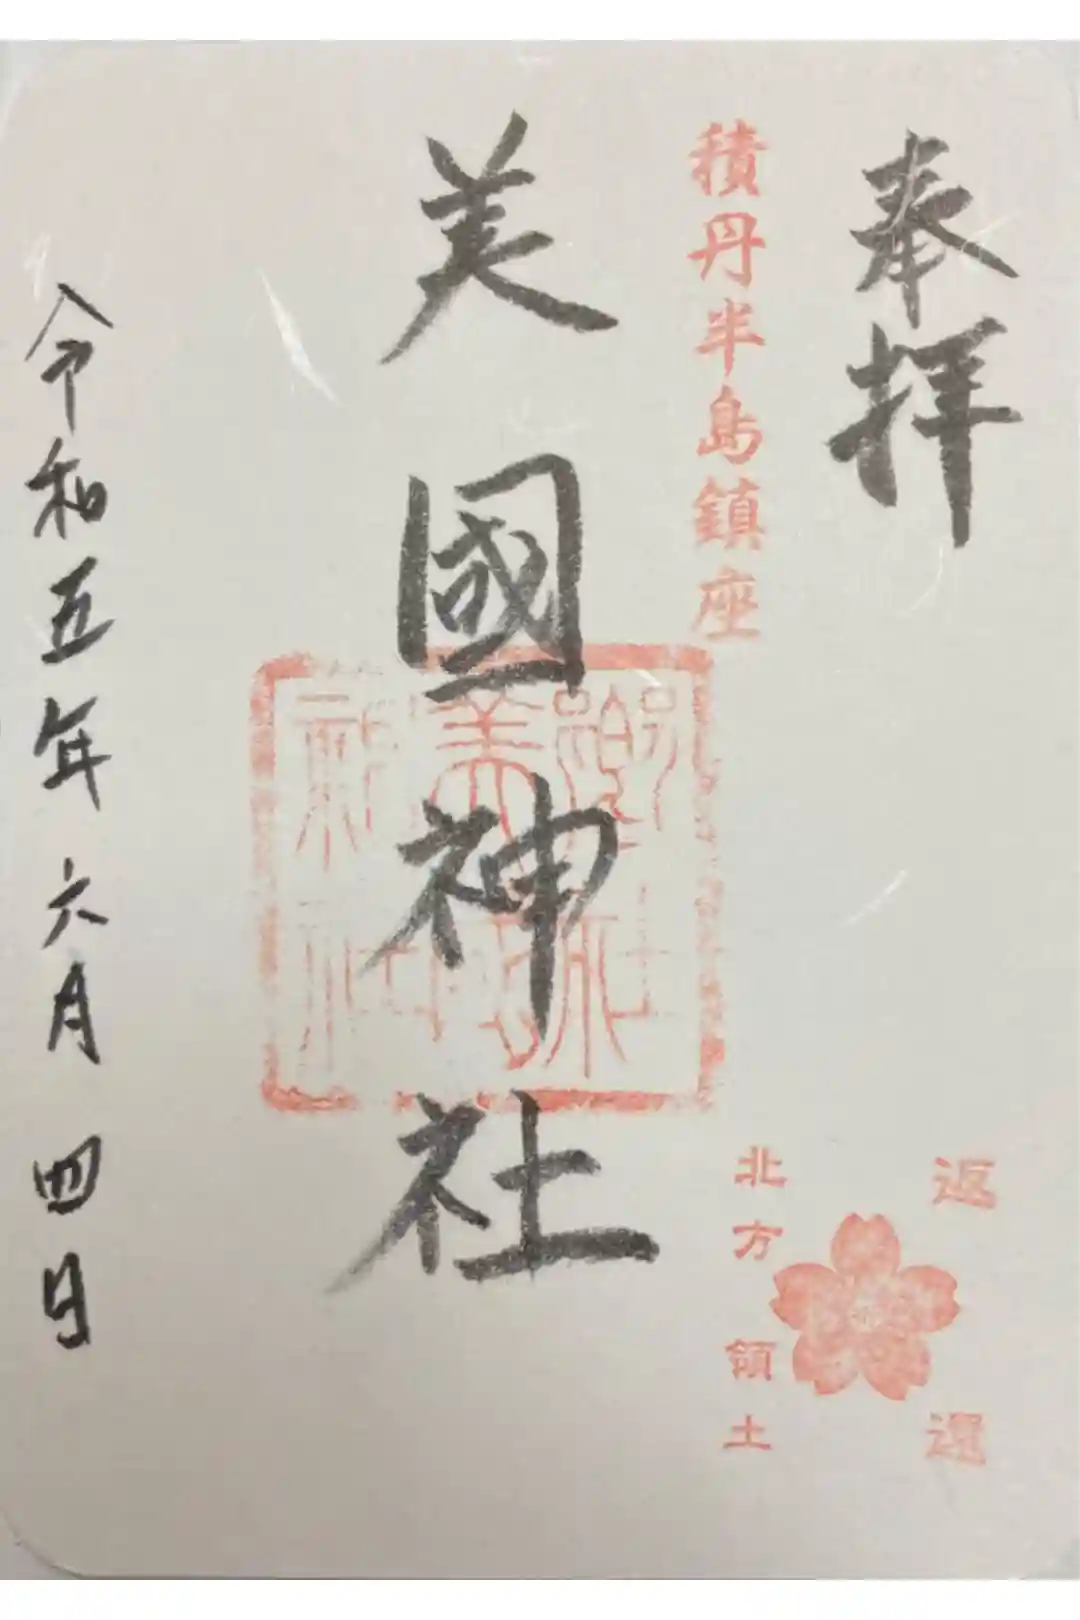 奉拝
積丹半島鎮座
美國神社
令和五年六月四日
返還
北方領土